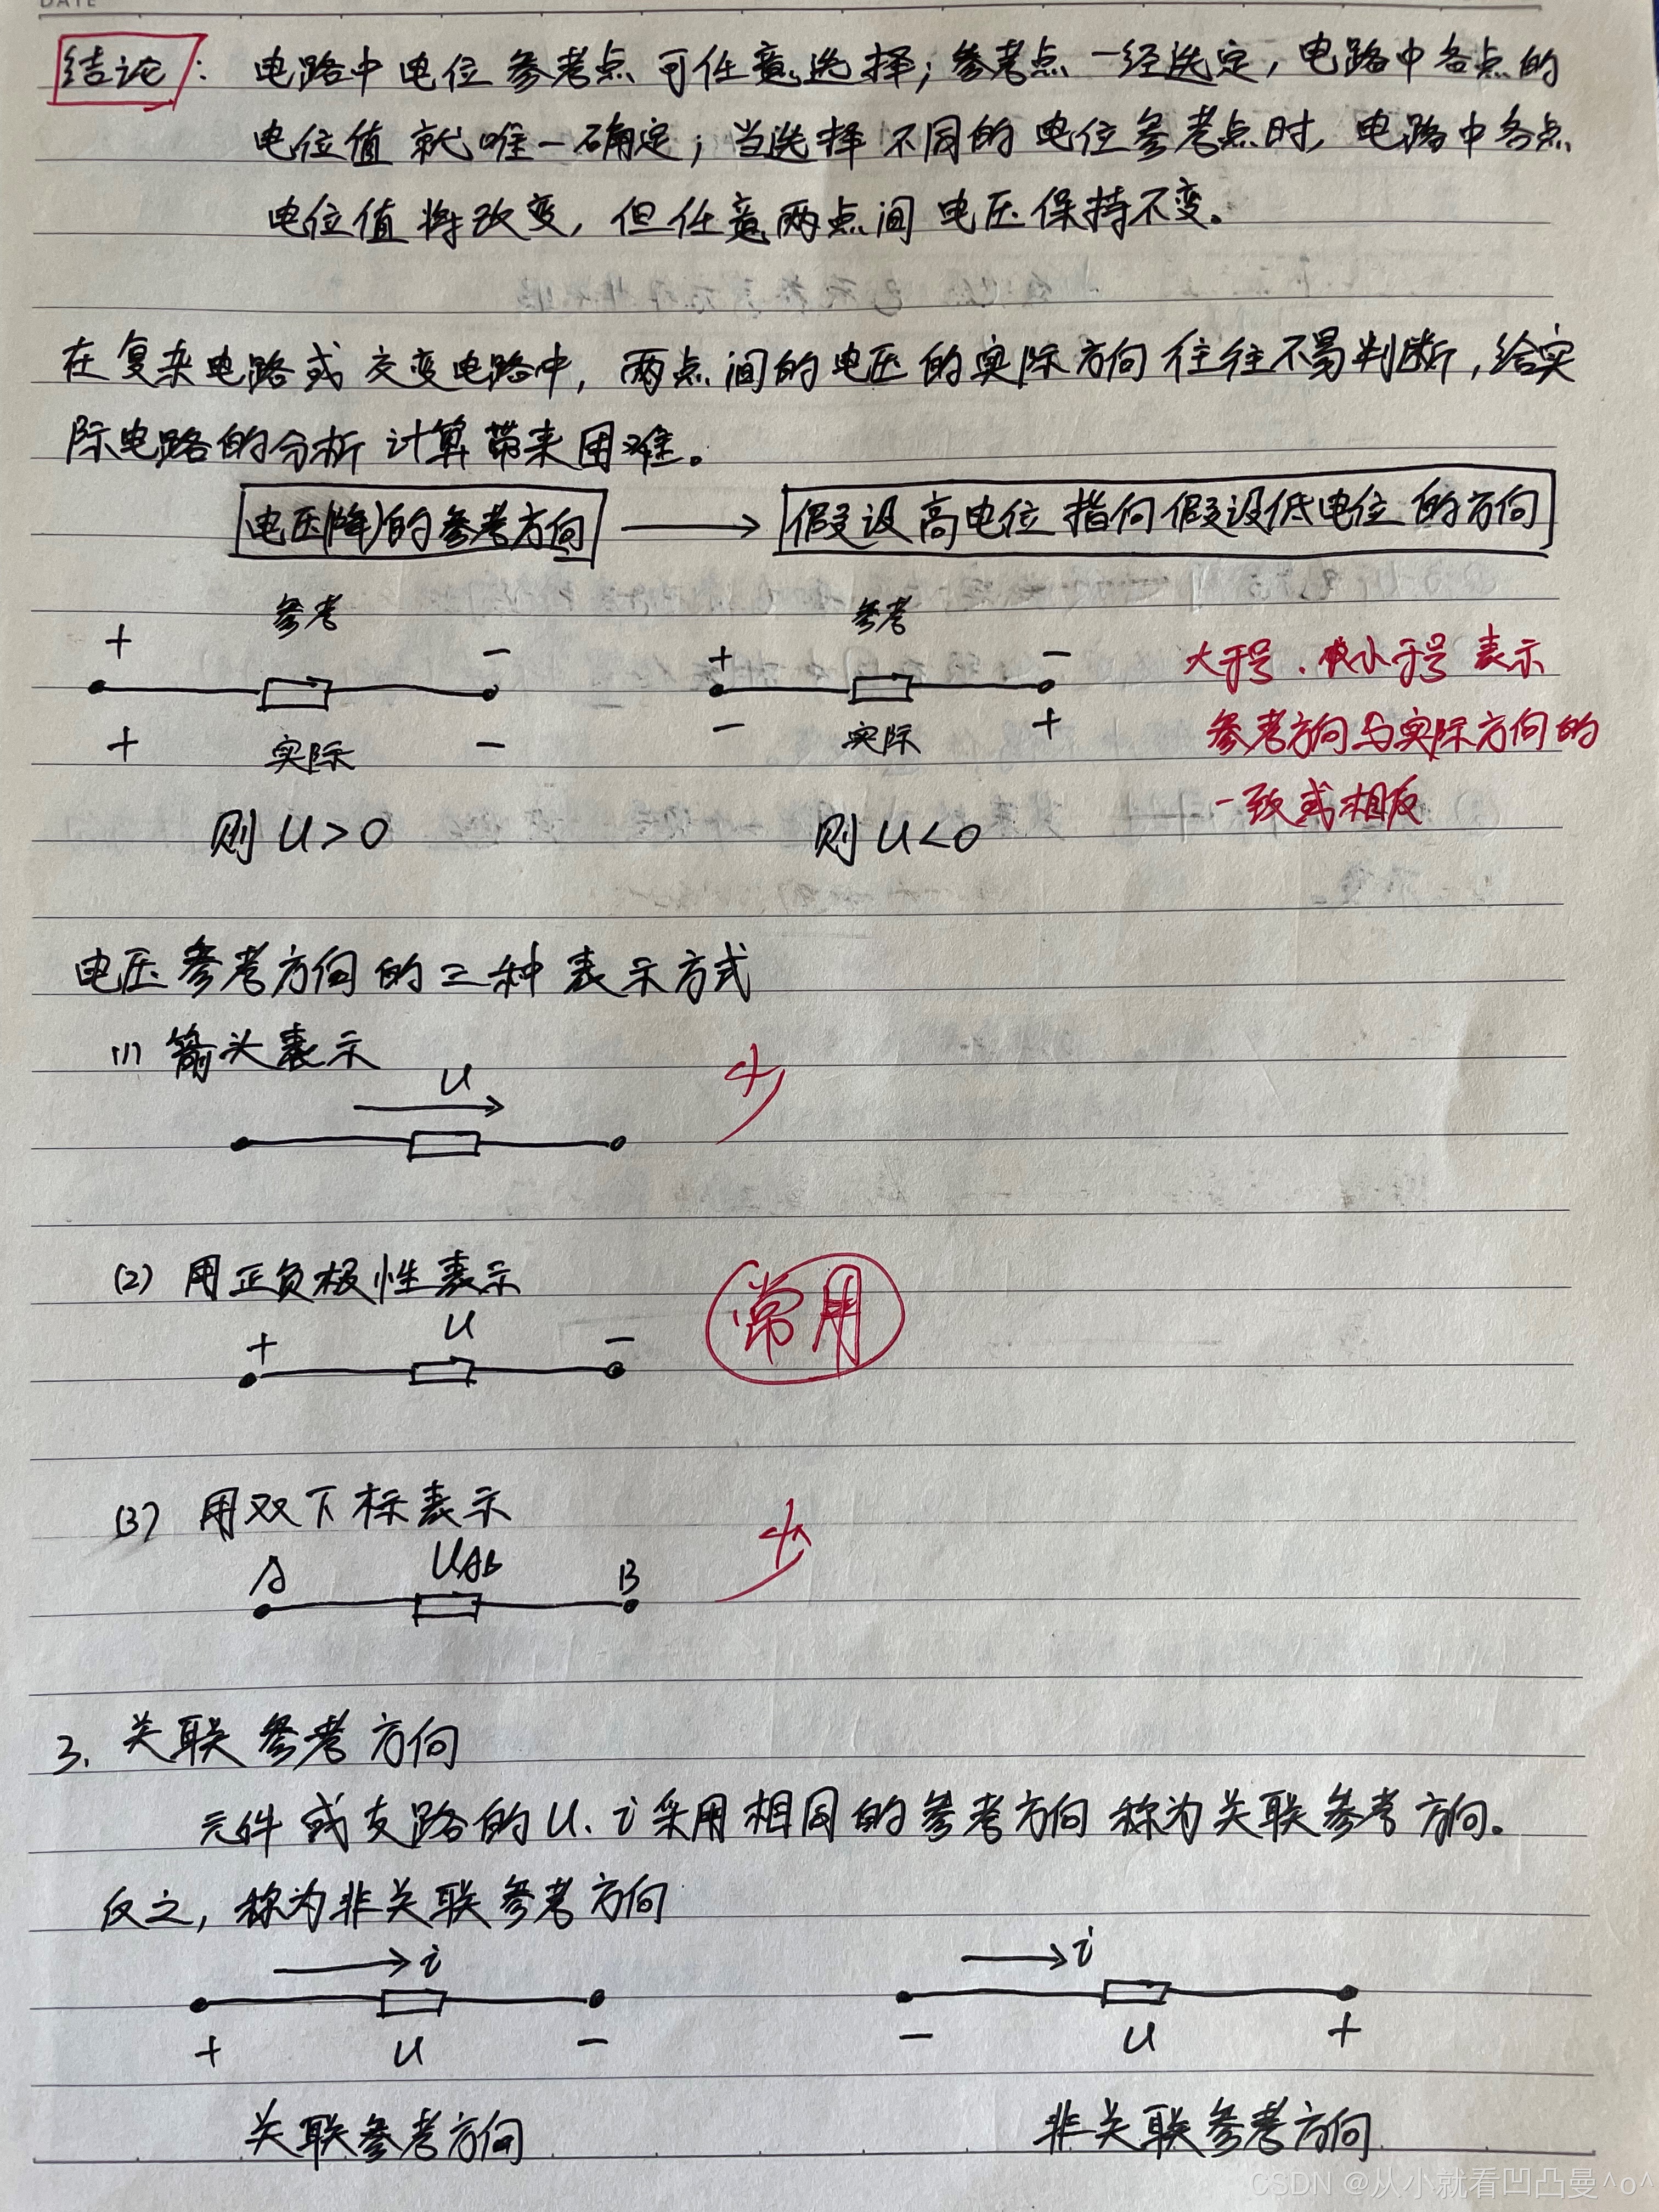 DATE
结论: 电路中电位参考点可任意选择;参考点一经选定,电路中各点的
电位值就唯一确定;当选择不同的电位参考点时,电路中各点
电位值将改变,但任意两点间电压保持不变。
在复杂电路或交变电路中,两点间的电压的实际方向往往不易判断,给实
际电路的分析计算带来困难。
电压(降)的参考方向 → 假设高电位指向假设低电位的方向
参考 参考
+ − + −
大于号、小于号表示
+ 实际 − − 实际 +
参考方向与实际方向的
一致或相反
则 U>0 则 U<0
电压参考方向的三种表示方式
(1) 箭头表示
U
少
(2) 用正负极性表示
常用
+ U −
(3) 用双下标表示
少
A UAB B
3. 关联参考方向
元件或支路的U、i采用相同的参考方向称为关联参考方向。
反之,称为非关联参考方向
→ i → i
+ U − − U +
关联参考方向 非关联参考方向
CSDN @从小就看凹凸曼^o^